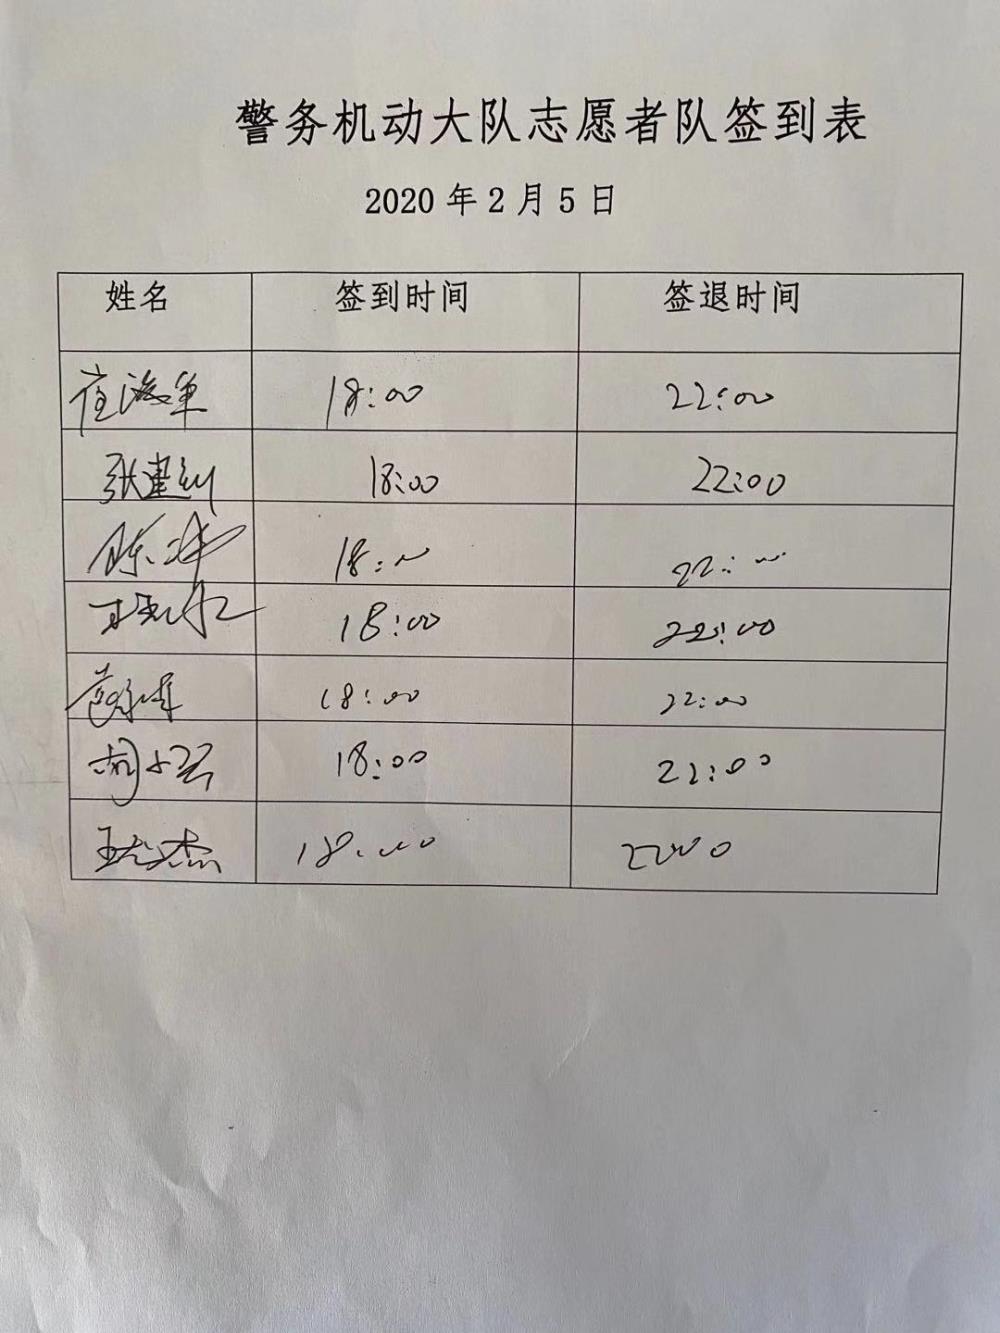 警务机动大队志愿者队签到表
2020年2月5日
姓名 签到时间 签退时间
18:00 22:00
张建 18:00 22:00
陈 18:00 22:00
18:00 22:00
18:00 22:00
胡小 18:00 22:00
王 杰 18:00 2200